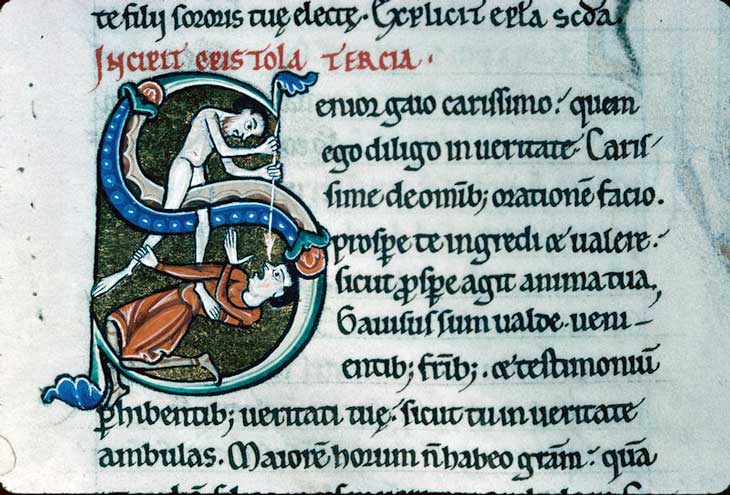 te filii sororis tuę electę. Explicit ep̄la scd̄a.
Incipit epistola tercia.
Senior gaio carissimo: quem
ego diligo in ueritate. Caris-
sime de omīb; orationē facio.
prospe te ingredi & ualere.
sicut prospe agit anima tua,
Gauisus sum ualde. ueni-
entib; fr̄ib;. & testimoniū
phibentib; ueritati tuę. sicut tu in ueritate
ambulas. Maiorē horum n̄ habeo grām: quā